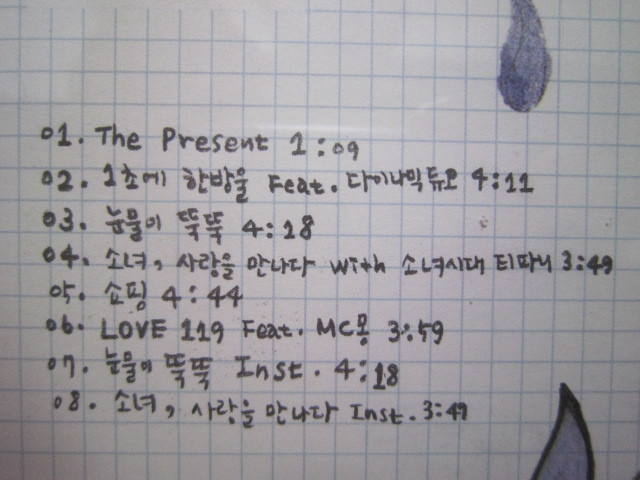 01. The Present 1:09
02. 1초에 한방울 Feat. 다이나믹듀오 4:11
03. 눈물이 뚝뚝 4:18
04. 소녀, 사랑을 만나다 with 소녀시대 티파니 3:49
05. 쇼핑 4:44
06. LOVE 119 Feat. MC몽 3:59
07. 눈물이 뚝뚝 Inst. 4:18
08. 소녀, 사랑을 만나다 Inst. 3:49